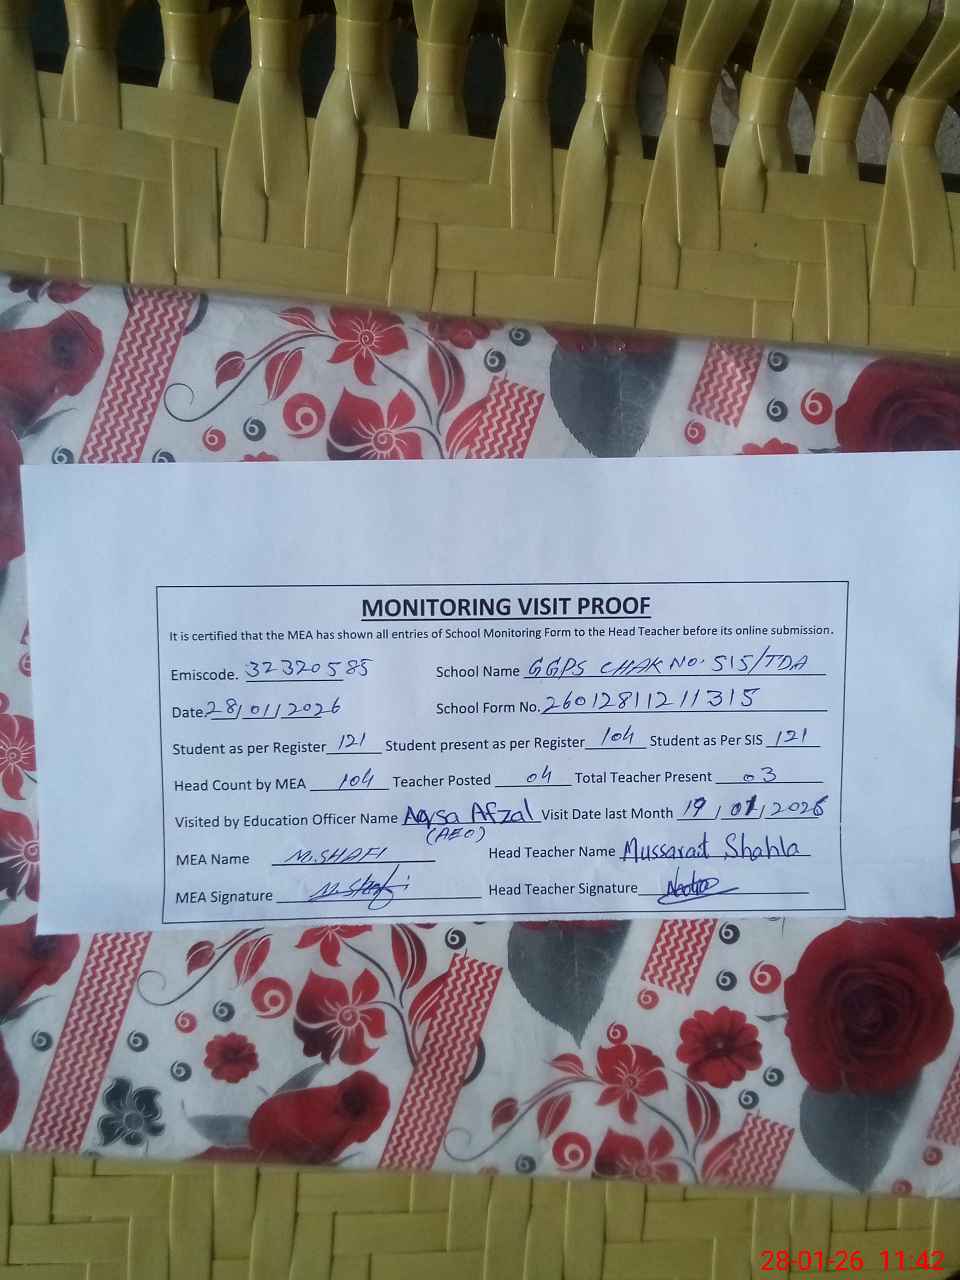 MONITORING VISIT PROOF
It is certified that the MEA has shown all entries of School Monitoring Form to the Head Teacher before its online submission.
Emiscode. 32320585 School Name GGPS CHAK NO. 515/TDA
Date 28/01/2026 School Form No. 26012811211315
Student as per Register 121 Student present as per Register 104 Student as Per SIS 121
Head Count by MEA 104 Teacher Posted 04 Total Teacher Present 03
Visited by Education Officer Name Aqsa Afzal Visit Date last Month 19/01/2026
(AEO)
MEA Name M.SHAFI Head Teacher Name Mussarat Shahla
MEA Signature M.Shafi Head Teacher Signature
28-01-26 11:42